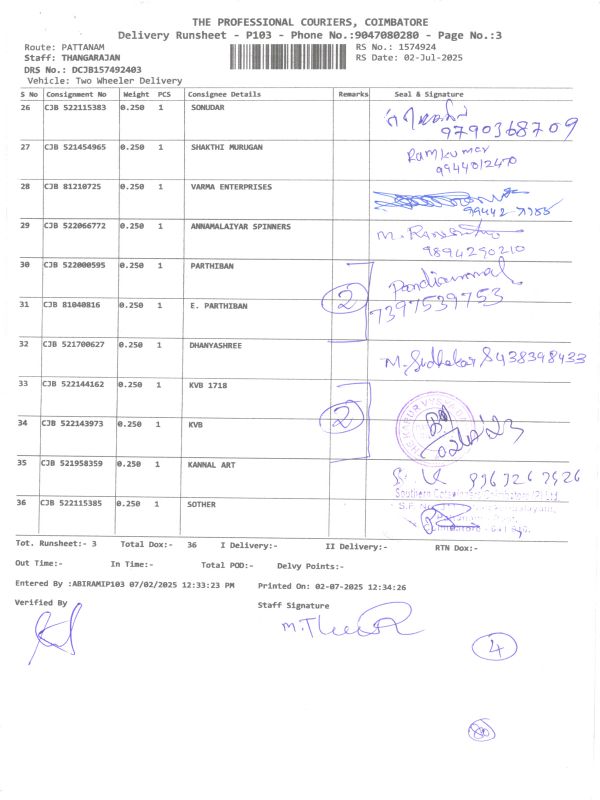 THE PROFESSIONAL COURIERS, COIMBATORE
Delivery Runsheet - P103 - Phone No.:9047080280 - Page No.:3
Route: PATTANAM RS No.: 1574924
Staff: THANGARAJAN RS Date: 02-Jul-2025
DRS No.: DCJB157492403
Vehicle: Two Wheeler Delivery
S No Consignment No Weight PCS Consignee Details Remarks Seal & Signature
26 CJB 522115383 0.250 1 SONUDAR
9790368709
27 CJB 521454965 0.250 1 SHAKTHI MURUGAN Ramkumar
9944012470
28 CJB 81210725 0.250 1 VARMA ENTERPRISES
99442
29 CJB 522066772 0.250 1 ANNAMALAIYAR SPINNERS M.
9894290210
30 CJB 522000595 0.250 1 PARTHIBAN Pandiammal
2 7397539753
31 CJB 81040816 0.250 1 E. PARTHIBAN
32 CJB 521700627 0.250 1 DHANYASHREE M. Sudhakar 8438398433
33 CJB 522144162 0.250 1 KVB 1718
2
34 CJB 522143973 0.250 1 KVB
35 CJB 521958359 0.250 1 KANNAL ART
36 CJB 522115385 0.250 1 SOTHER
Tot. Runsheet:- 3 Total Dox:- 36 I Delivery:- II Delivery:- RTN Dox:-
Out Time:- In Time:- Total POD:- Delvy Points:-
Entered By :ABIRAMIP103 07/02/2025 12:33:23 PM Printed On: 02-07-2025 12:34:26
Verified By Staff Signature
4